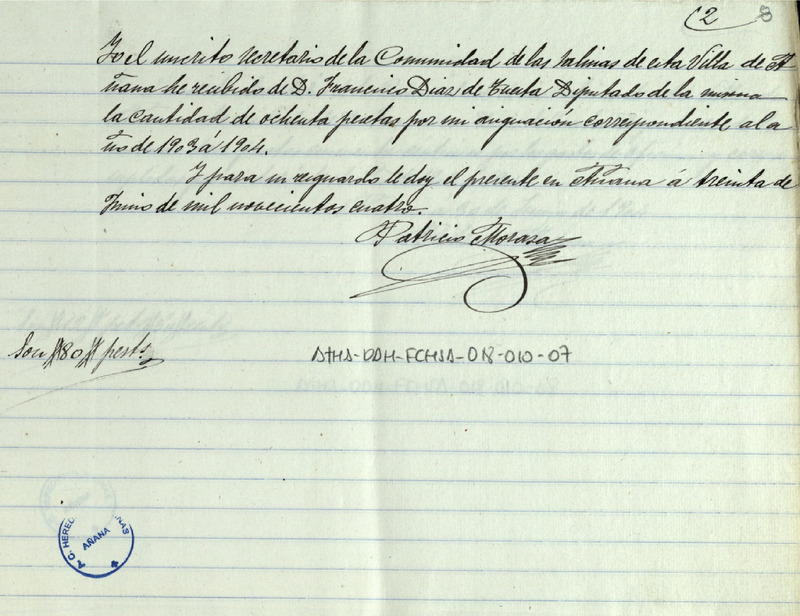 (2 8
Yo el inscrito secretario de la Comunidad de las salinas de esta Villa de A
ñana he recibido de D. Francisco Diaz de Tuesta Diputado de la misma
la cantidad de ochenta pesetas por mi asignación correspondiente al a
ño de 1903 á 1904.
Y para su resguardo le doy el presente en Añana á treinta de
Junio de mil novecientos cuatro.
Patricio Moraza
Son 80 pests
ATHA-DAH-FCHSA-018-010-07
HERED
AÑANA